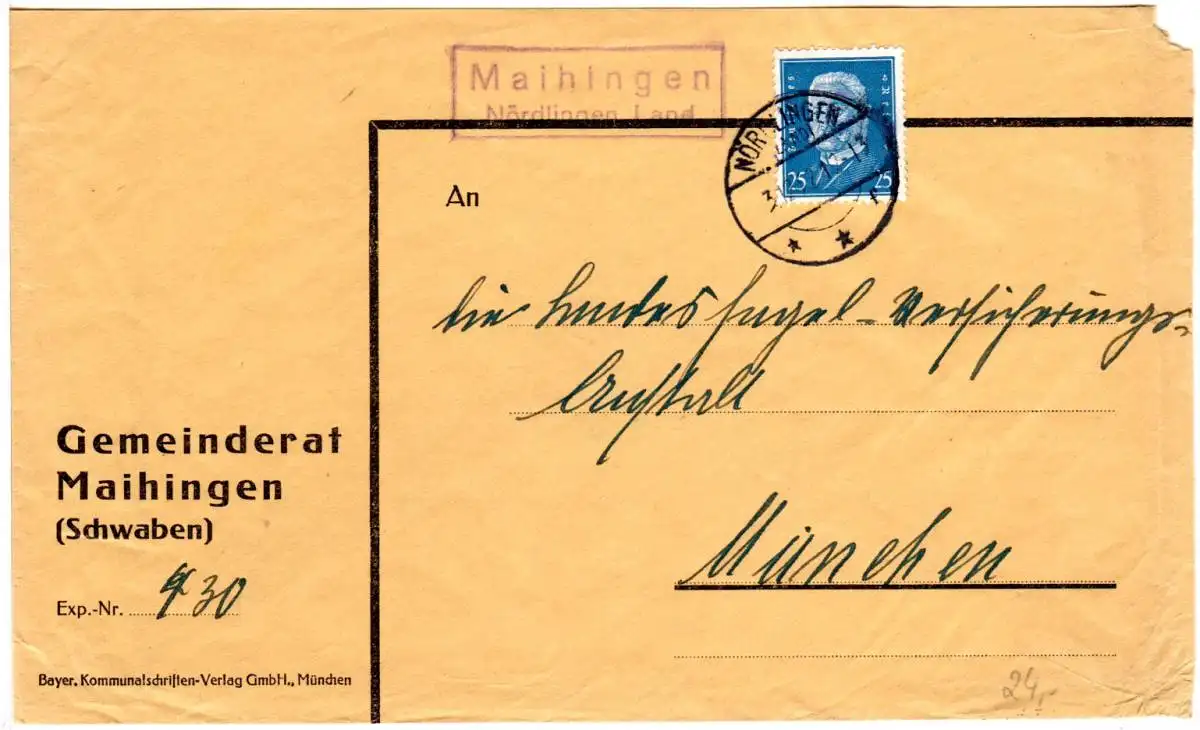 Maihingen
Nördlingen Land
25 25
NÖRDLINGEN
An
die Landes Hagel-Versicherungs-
Anstalt
München
Gemeinderat
Maihingen
(Schwaben)
Exp.-Nr. 430
Bayer. Kommunalschriften-Verlag GmbH., München
24,-